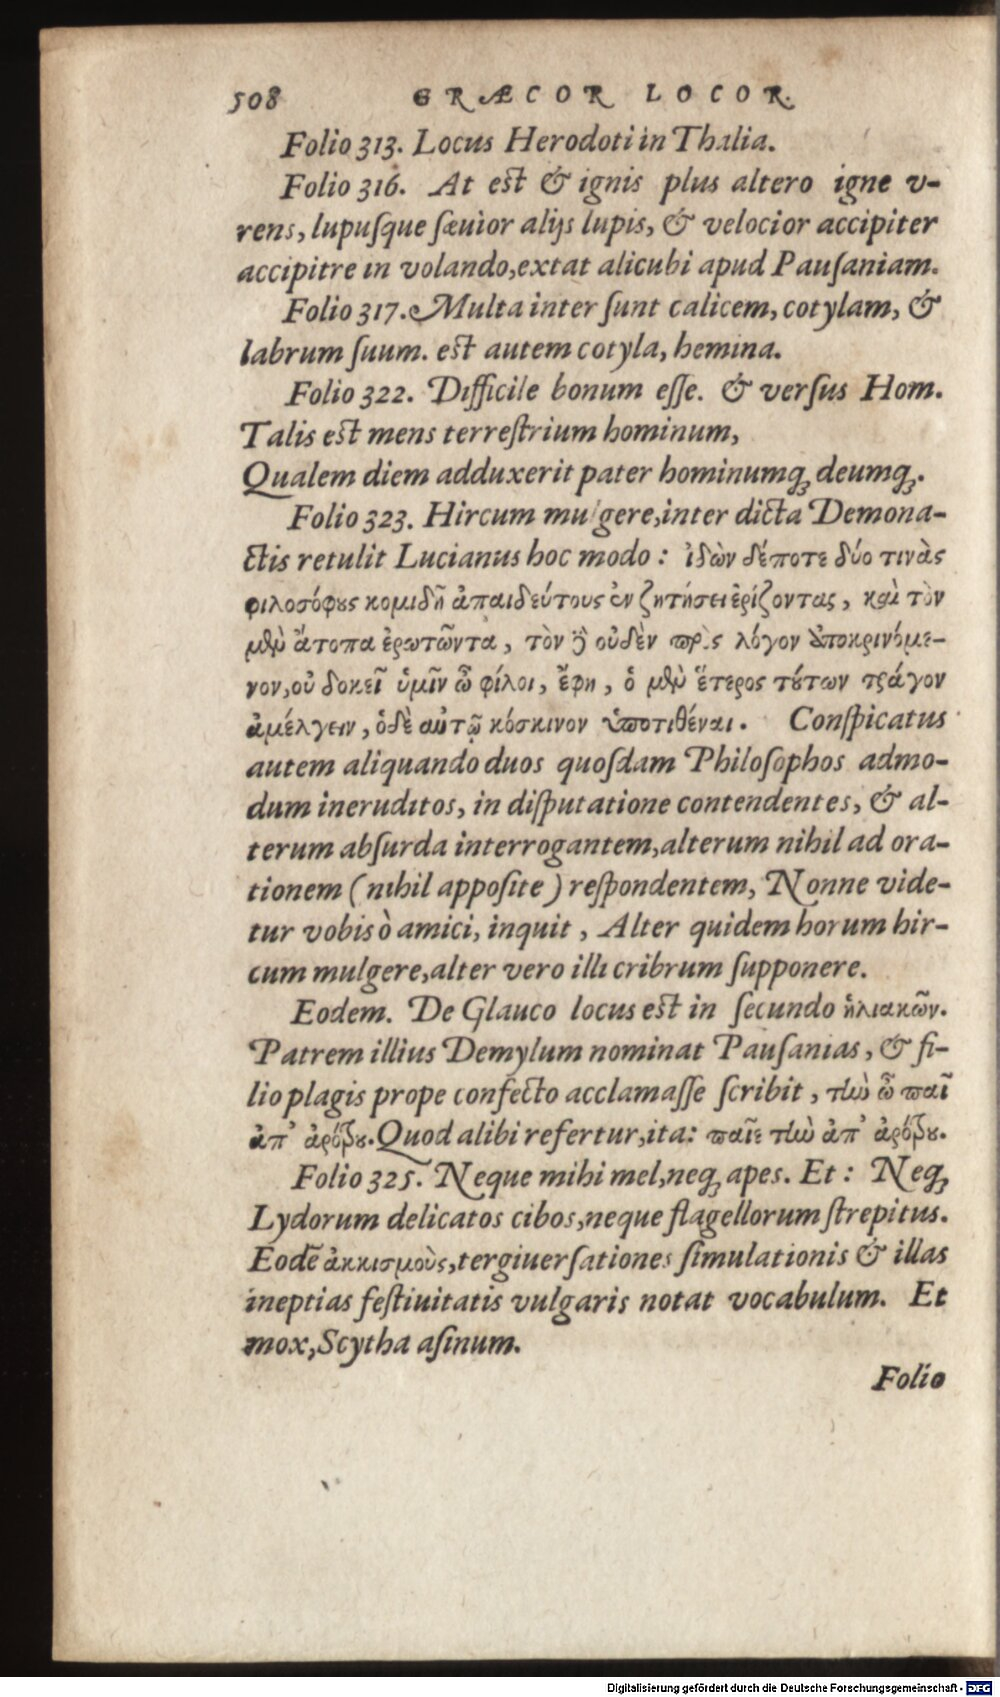 508 GRÆCOR LOCOR.
Folio 313. Locus Herodoti in Thalia.
Folio 316. At est & ignis plus altero igne v-
rens, lupuſque ſæuior alijs lupis, & velocior accipiter
accipitre in volando, extat alicubi apud Pauſaniam.
Folio 317. Multa inter ſunt calicem, cotylam, &
labrum ſuum. est autem cotyla, hemina.
Folio 322. Difficile bonum eſſe. & verſus Hom.
Talis est mens terreſtrium hominum,
Qualem diem adduxerit pater hominumq́; deumq́;.
Folio 323. Hircum mulgere, inter dicta Demona-
ctis retulit Lucianus hoc modo: ἰδὼν δέποτε δύο τινὰς
φιλοσόφους κομιδῆ ἀπαιδεύτους ἐν ζητήσει ἐρίζοντας, καὶ τὸν
μὲν ἄτοπα ἐρωτῶντα, τὸν δὲ οὐδὲν πρὸς λόγον ἀποκρινόμε-
νον, οὐ δοκεῖ ὑμῖν ὦ φίλοι, ἔφη, ὁ μὲν ἕτερος τούτων τράγον
ἀμέλγειν, ὁδὲ αὐτῷ κόσκινον ὑποτιθέναι. Conſpicatus
autem aliquando duos quoſdam Philoſophos admo-
dum ineruditos, in diſputatione contendentes, & al-
terum abſurda interrogantem, alterum nihil ad ora-
tionem (nihil appoſite) reſpondentem, Nonne vide-
tur vobis ò amici, inquit, Alter quidem horum hir-
cum mulgere, alter vero illi cribrum ſupponere.
Eodem. De Glauco locus est in ſecundo ἡλιακῶν.
Patrem illius Demylum nominat Pauſanias, & fi-
lio plagis prope confecto acclamaſſe ſcribit, τὴν ὦ παῖ
ἀπ' ἀρότρου. Quod alibi refertur, ita: παῖε τὴν ἀπ' ἀρότρου.
Folio 325. Neque mihi mel, neq; apes. Et: Neq;
Lydorum delicatos cibos, neque flagellorum ſtrepitus.
Eodē ἀκκισμοὺς, tergiuerſationes ſimulationis & illas
ineptias feſtiuitatis vulgaris notat vocabulum. Et
mox, Scytha aſinum.
Folio
Digitalisierung gefördert durch die Deutsche Forschungsgemeinschaft - DFG